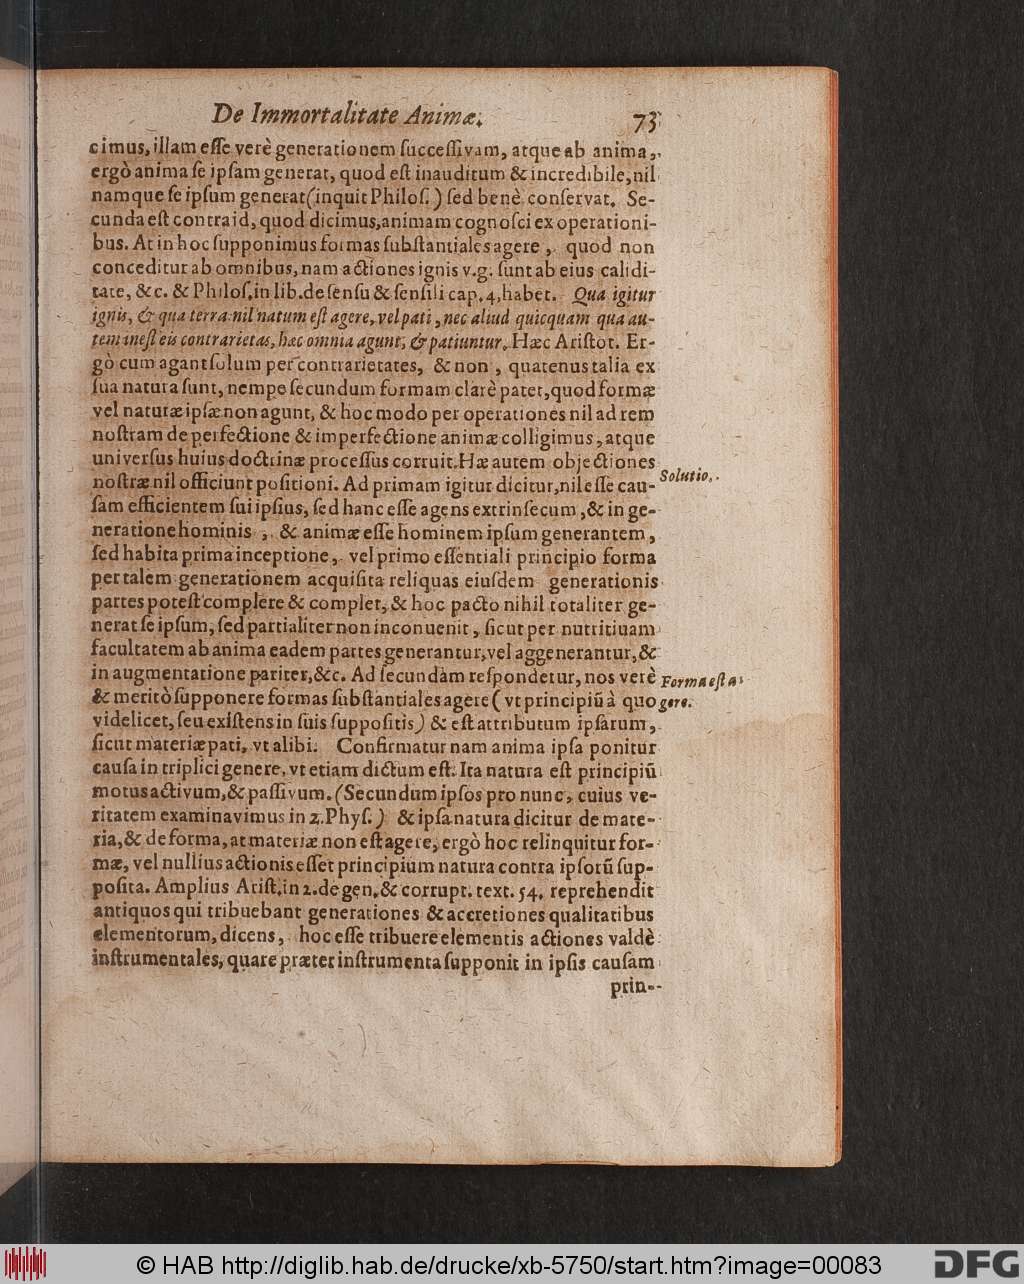 De Immortalitate Animæ. 73
cimus, illam eſſe verè generationem ſucceſſivam, atque ab anima,
ergò anima ſe ipſam generat, quod eſt inauditum & incredibile, nil
namque ſe ipſum generat (inquit Philoſ.) ſed benè conſervat. Se-
cunda eſt contra id, quod dicimus, animam cognoſci ex operationi-
bus. At in hoc ſupponimus formas ſubſtantiales agere, quod non
conceditur ab omnibus, nam actiones ignis v.g. ſunt ab eius calidi-
tate, &c. & Philoſ. in lib. de ſenſu & ſenſili cap. 4, habet. Qua igitur
ignis, & qua terra: nil natum eſt agere, vel pati, nec aliud quicquam qua au-
tem ineſt eis contrarietas, hæc omnia agunt, & patiuntur. Hæc Ariſtot. Er-
gò cum agant ſolum per contrarietates, & non, quatenus talia ex
ſua natura ſunt, nempe ſecundum formam clarè patet, quod formæ
vel naturæ ipſæ non agunt, & hoc modo per operationes nil ad rem
noſtram de perfectione & imperfectione animæ colligimus, atque
univerſus huius doctrinæ proceſſus corruit. Hæ autem objectiones
noſtræ nil officiunt poſitioni. Ad primam igitur dicitur, nil eſſe cau-
Solutio.
ſam efficientem ſui ipſius, ſed hanc eſſe agens extrinſecum, & in ge-
neratione hominis, & animæ eſſe hominem ipſum generantem,
ſed habita prima inceptione, vel primo eſſentiali principio forma
per talem generationem acquiſita reliquas eiuſdem generationis
partes poteſt complere & complet, & hoc pacto nihil totaliter ge-
nerat ſe ipſum, ſed partialiter non inconuenit, ſicut per nutritiuam
facultatem ab anima eadem partes generantur, vel aggenerantur, &
in augmentatione pariter, &c. Ad ſecundàm reſpondetur, nos verè
Forma eſt a-
& meritò ſupponere formas ſubſtantiales agere (vt principiũ à quo
gere.
videlicet, ſeu exiſtens in ſuis ſuppoſitis) & eſt attributum ipſarum,
ſicut materiæ pati, vt alibi. Confirmatur nam anima ipſa ponitur
cauſa in triplici genere, vt etiam dictum eſt. Ita natura eſt principiũ
motus activum, & paſſivum. (Secundum ipſos pro nunc, cuius ve-
ritatem examinavimus in 2. Phyſ.) & ipſa natura dicitur de mate-
ria, & de forma, at materiæ non eſt agere, ergò hoc relinquitur for-
mæ, vel nullius actionis eſſet principium natura contra ipſorũ ſup-
poſita. Amplius Ariſt. in 2. de gen. & corrupt. text. 54. reprehendit
antiquos qui tribuebant generationes & accretiones qualitatibus
elementorum, dicens, hoc eſſe tribuere elementis actiones valdè
inſtrumentales, quare præter inſtrumenta ſupponit in ipſis cauſam
prin-
© HAB http://diglib.hab.de/drucke/xb-5750/start.htm?image=00083
DFG